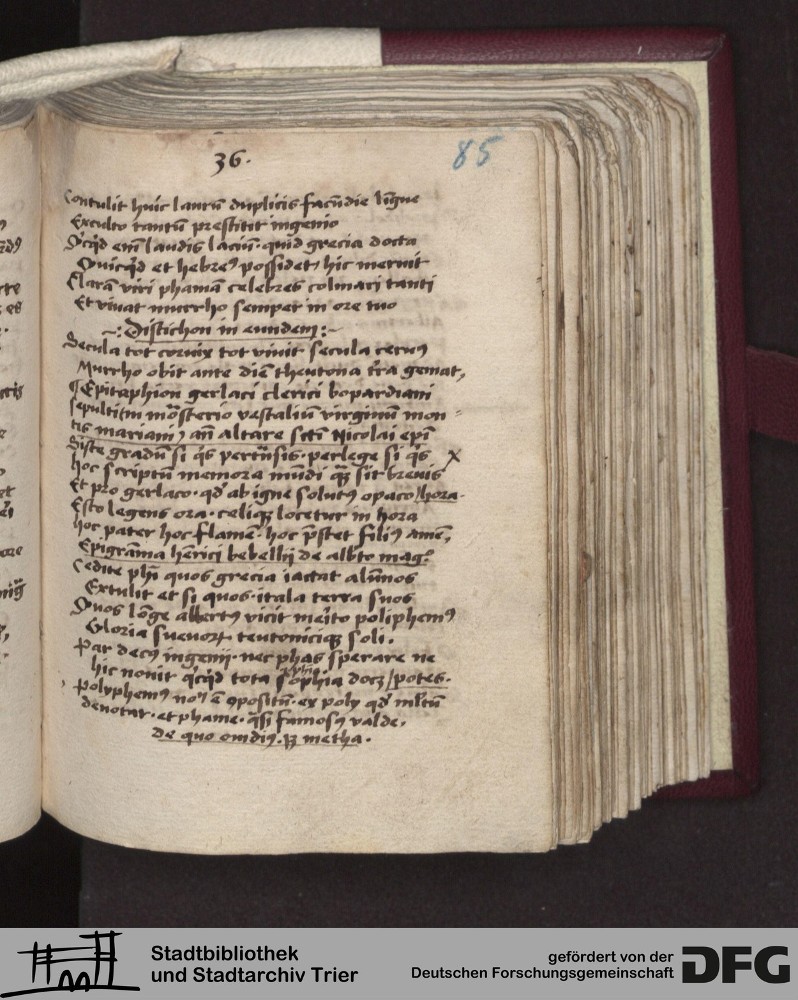 36.
85
Contulit huic laurū duplicis facūdie līgue
Exculto tantū prestitit ingenio
Qͥcqͥd em̄ laudis laciū quid grecia docta
Quicqͥd et hebreꝰ possidet, hic meruit
Clarā viri phamā celebres colmari tanti
Et vivat murrho semper in ore tuo
~: Distichon in eundem :~
Secula tot cornix tot vivit secula cervꝰ
Murrho obit ante diē theutona tr̄a gemat,
¶ Epitaphion gerlaci clerici bopardiani
sepulti in mōsterio vestaliū virginū mon=
tis mariani, an̄ altare scti Nicolai epī
Siste gradū si qͥs perrūsis perlege si qͥs X
hoc scriptū memora mūdi qꝫ sit brevis
Et pro gerlaco qd̄ ab igne solutꝰ opaco / hora.
Esto legens ora celiqꝫ locetur in hora
hoc pater hoc flamē hoc p̄stet filiꝰ amē,
Epigrāma hērici bebellij de alb̄to mag̊
Cedite phī quos grecia iactat alūnos
Extulit et si quos itala terra suos
Quos lōge albertꝰ vicit merito poliphemꝰ
Gloria suevoꝝ teutoniciqꝫ soli.
Par decꝰ ingenij nec phas sperare ne
hic novit qͥcqͥd tota sophia docꝫ / potes.
Polyphemꝰ nom̄ ē ꝯpositū ex poly qd̄ mltū
denotat et phame qͣsi famosꝰ valde.
de quo ovidiꝰ ꝫ metha.
Stadtbibliothek
und Stadtarchiv Trier
gefördert von der
Deutschen Forschungsgemeinschaft
DFG